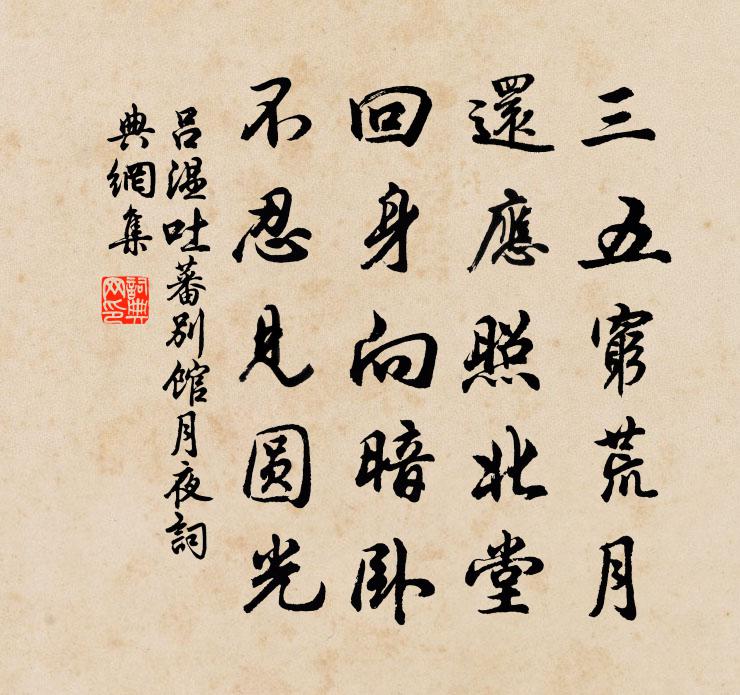 三五窮荒月
還應照北堂
回身向暗卧
不忍見圓光
吕温吐蕃别館月夜詞
典網集
詞典
网印